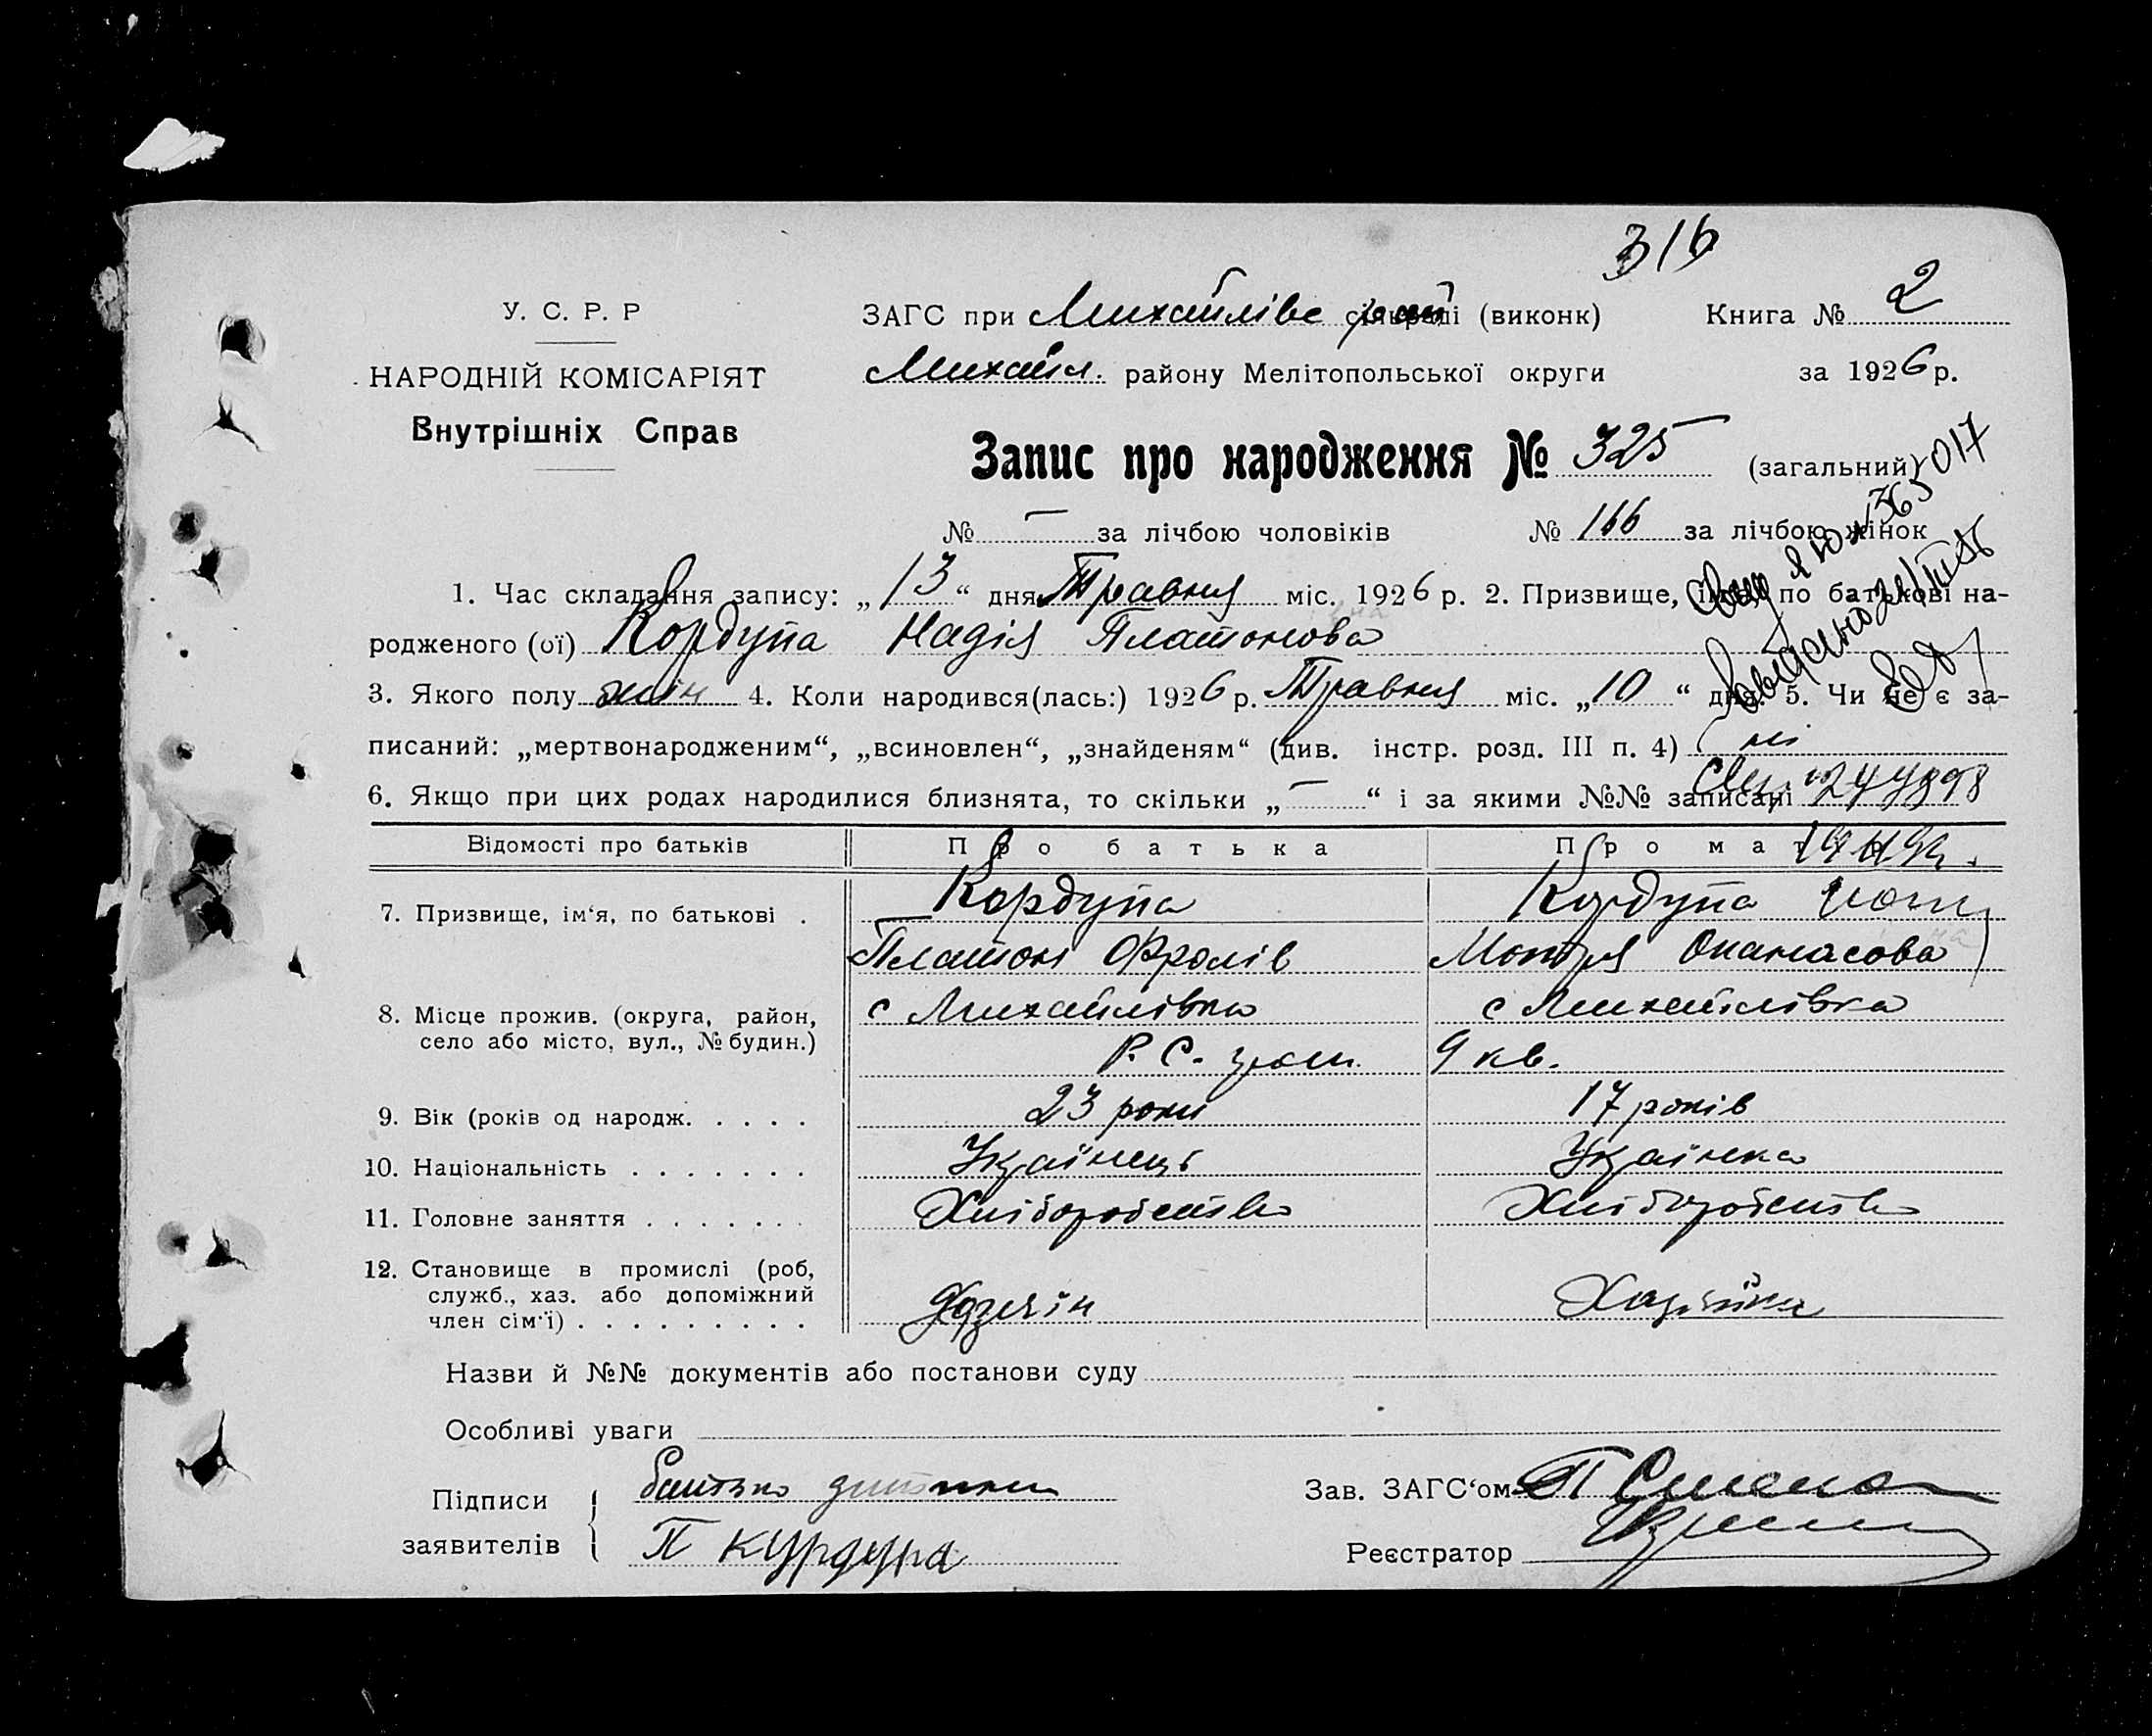 316
У. С. Р. Р
ЗАГС при Михайлівс рай (виконк) Книга № 2
НАРОДНІЙ КОМІСАРІЯТ
Михайл. району Мелітопольської округи за 1926 р.
Внутрішніх Справ
Запис про народження № 325 (загальний)
№ — за лічбою чоловіків № 166 за лічбою жінок
1. Час складання запису: „13“ дня Травня міс. 1926 р. 2. Призвище, ім'я, по батькові на-
родженого (ої) Кордупа Надія Платонова
3. Якого полу жін 4. Коли народився(лась:) 1926 р. Травня міс. „10“ дня. 5. Чи не є за-
писаний: „мертвонародженим“, „всиновлен“, „знайденям“ (див. інстр. розд. III п. 4) ні
6. Якщо при цих родах народилися близнята, то скільки „—“ і за якими №№ записані
Відомості про батьків Про батька Про матір
7. Призвище, ім‘я, по батькові . Кордупа Кордупа
Платон Фролів Мотря Опанасова
8. Місце прожив. (округа, район, с Михайлівка с Михайлівка
село або місто, вул., № будин.) Р. С. 9 кв.
9. Вік (років од народж. . . . . 23 роки 17 років
10. Національність . . . . . . . Українець Українка
11. Головне заняття . . . . . . . Хліборобство Хліборобство
12. Становище в промислі (роб,
служб., хаз. або допоміжний Хазяін Хазяйка
член сім‘ї) . . . . . . . . .
Назви й №№ документів або постанови суду
Особливі уваги
Підписи батько дитини Зав. ЗАГС‘ом
заявителів П Курдупа Реєстратор